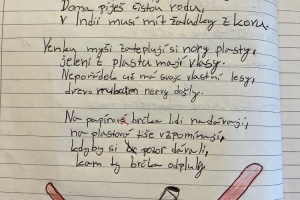 Doma piješ čistou vodu,
v Indii musí mít žaludky z kovu.
Venku myši zateplují si nory plasty,
jeleni z plastu mají vlasy.
Nepořádek už má svoje vlastní lesy,
dřevo nerv došly.
Na papírová brčka lidi nadávají,
na plastová tiše vzpomínají,
kdyby si pozor dávali,
kam ty brčka odpluly.